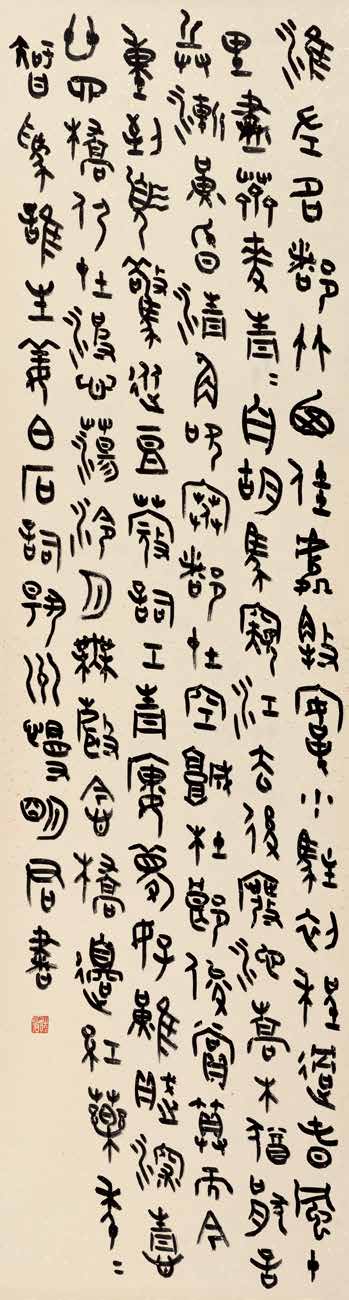 淮左名都竹西佳處解鞍少駐初程過春風十
里盡薺麥青〻自胡馬窺江去後廢池喬木猶厭言
兵漸黃昏清角吹寒都在空城杜郎俊賞算而今
重到須驚縱豆蔻詞工青樓夢好難賦深情
廿四橋仍在波心蕩冷月無聲念橋邊紅藥年〻
知為誰生姜白石詞揚州慢明書